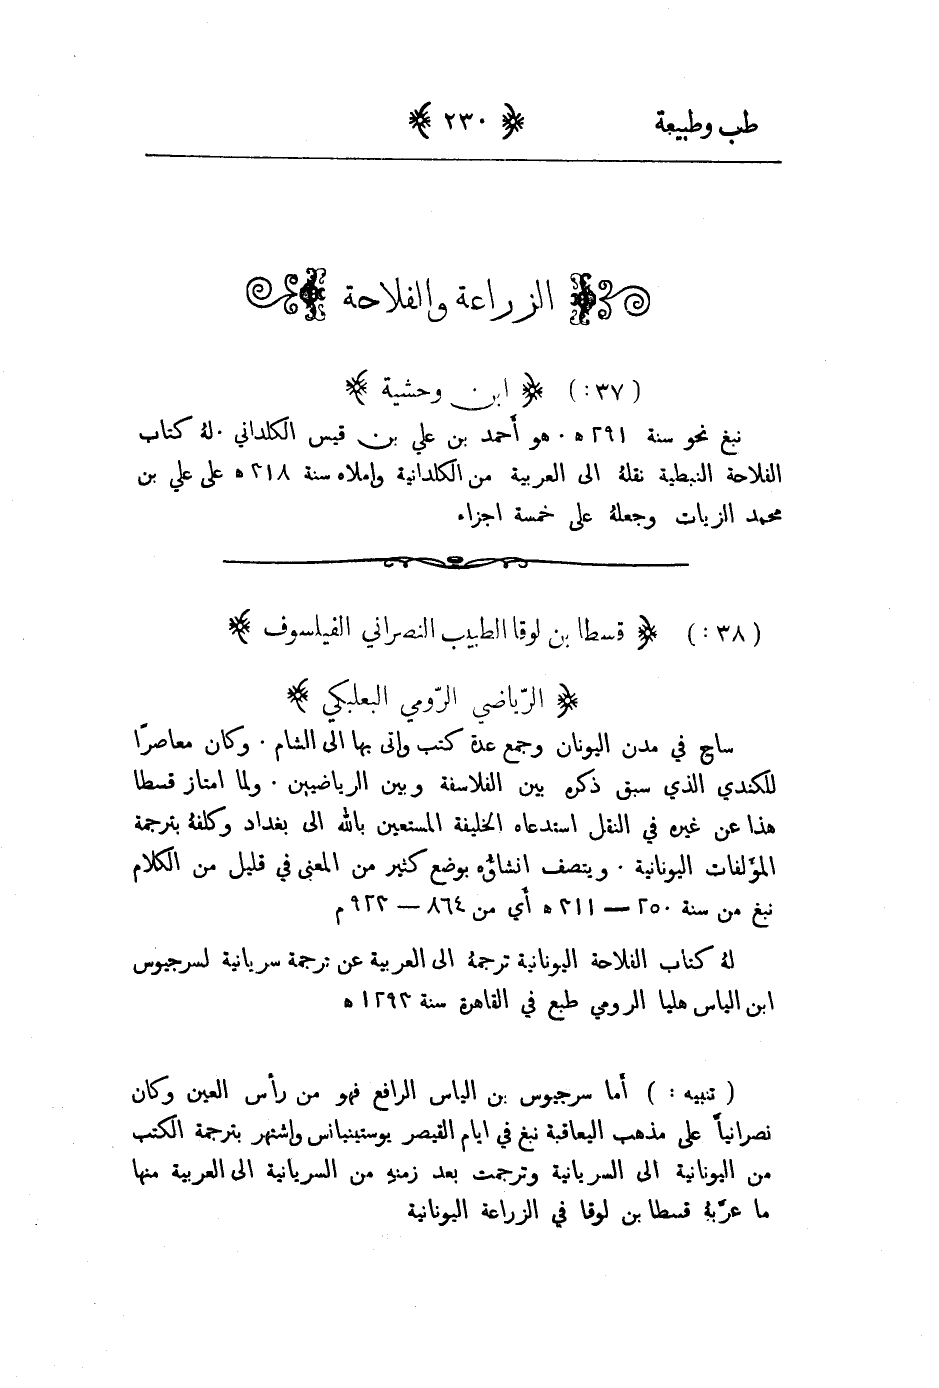 طب وطبيعة ﴿ ٢٣٠ ﴾
الزراعة والفلاحة
( ٣٧ : ) ﴿ ابن وحشية ﴾
نبغ نحو سنة ٢٩١ ه ٠ هو أحمد بن علي بن قيس الكلداني ٠ لهُ كتاب
الفلاحة النبطية نقلهُ الى العربية من الكلدانية واملاه سنة ٣١٨ ه على علي بن
محمد الزيات وجعلهُ على خمسة اجزاء
( ٣٨ : ) ﴿ قسطا بن لوقا الطبيب النصراني الفيلسوف ﴾
﴿ الرّياضي الرّومي البعلبكي ﴾
ساح في مدن اليونان وجمع عدة كتب واتى بها الى الشام ٠ وكان معاصرًا
للكندي الذي سبق ذكره بين الفلاسفة وبين الرياضيين ٠ ولما امتاز قسطا
هذا عن غيره في النقل استدعاه الخليفة المستعين بالله الى بغداد وكلفهُ بترجمة
المؤلفات اليونانية ٠ ويتصف انشاؤه بوضع كثير من المعنى في قليل من الكلام
نبغ من سنة ٢٥٠ — ٣١١ ه أي من ٨٦٤ — ٩٢٣ م
لهُ كتاب الفلاحة اليونانية ترجمهُ الى العربية عن ترجمة سريانية لسرجيوس
ابن الياس هليا الرومي طبع في القاهرة سنة ١٢٩٣ ه
( تنبيه : ) أما سرجيوس بن الياس الرافع فهو من رأس العين وكان
نصرانياً على مذهب اليعاقبة نبغ في ايام القيصر يوستينيانس واشتهر بترجمة الكتب
من اليونانية الى السريانية وترجمت بعد زمنهِ من السريانية الى العربية منها
ما عرّبهُ قسطا بن لوقا في الزراعة اليونانية